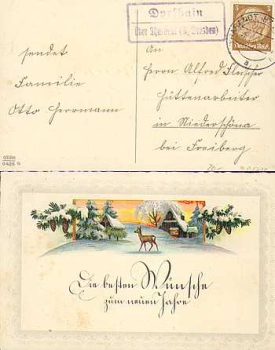 Dorfhain
über
Deutsches Reich
sendet
Familie
Otto Herrmann
An
Herrn Alfred Fleischer
Hüttenarbeiter
in Niederschöna
bei Freiberg
Die besten Wünsche
zum neuen Jahre